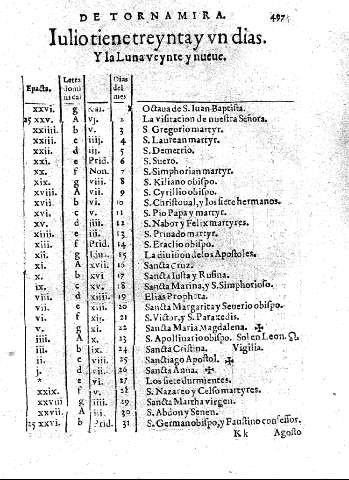 DE TORNAMIRA. 497
Iulio tiene treynta y vn dias.
Y la Luna veynte y nueue.
Epacta. Letra domi nical. Dias del mes
xxvi. g Kal. 1 Octaua de S. Iuan Baptista.
25 xxv. A vj. 2 La visitacion de nuestra Señora.
xxiiii. b v. 3 S. Gregorio martyr.
xxiii. c iiij. 4 S. Laurean martyr.
xxii. d iij. 5 S. Demetrio.
xxi. e Prid. 6 S. Suero.
xx. f Non. 7 S. Simphorian martyr.
xix. g viii. 8 S. Kiliano obispo.
xviii. A vii. 9 S. Cyrillio obispo.
xvii. b vi. 10 S. Christoual, y los siete hermanos.
xvi. c v. 11 S. Pio Papa y martyr.
xv. d iiii. 12 S. Nabor y Felix martyres.
xiiii. e iii. 13 S. Priuado martyr.
xiii. f Prid. 14 S. Eraclio obispo.
xii. g Idus. 15 La diuision de los Apostoles.
xi. A xvii. 16 Sancta Cruz.
x. b xvi 17 Sancta Iusta y Rufina.
ix. c xv. 18 Sancta Marina, y S. Simphorioso.
viii. d xiiii. 19 Elias Propheta.
vii. e xiii. 20 Sancta Margarita y Seuerio obispo.
vi. f xij. 21 S. Victor, y S. Paraxedis.
v. g xi. 22 Sancta Maria Magdalena. ✠
iiii. A x. 23 S. Apollinario obispo. Sol en Leon. ♌
iii. b ix. 24 Sancta Cristina. Vigilia.
ii. c viii. 25 Sanctiago Apostol. ✠
j. d vii. 26 Sancta Anna. ✠
* e vi. 27 Los siete durmientes.
xxix. f v. 28 S. Nazareo y Celso martyres.
xxviii g iiii. 29 Sancta Martha virgen.
xxvii. A iii. 30 S. Abdon y Senen.
25 xxvi. b Prid. 31 S. Germano bispo, y Faustino confessor.
Kk Agosto